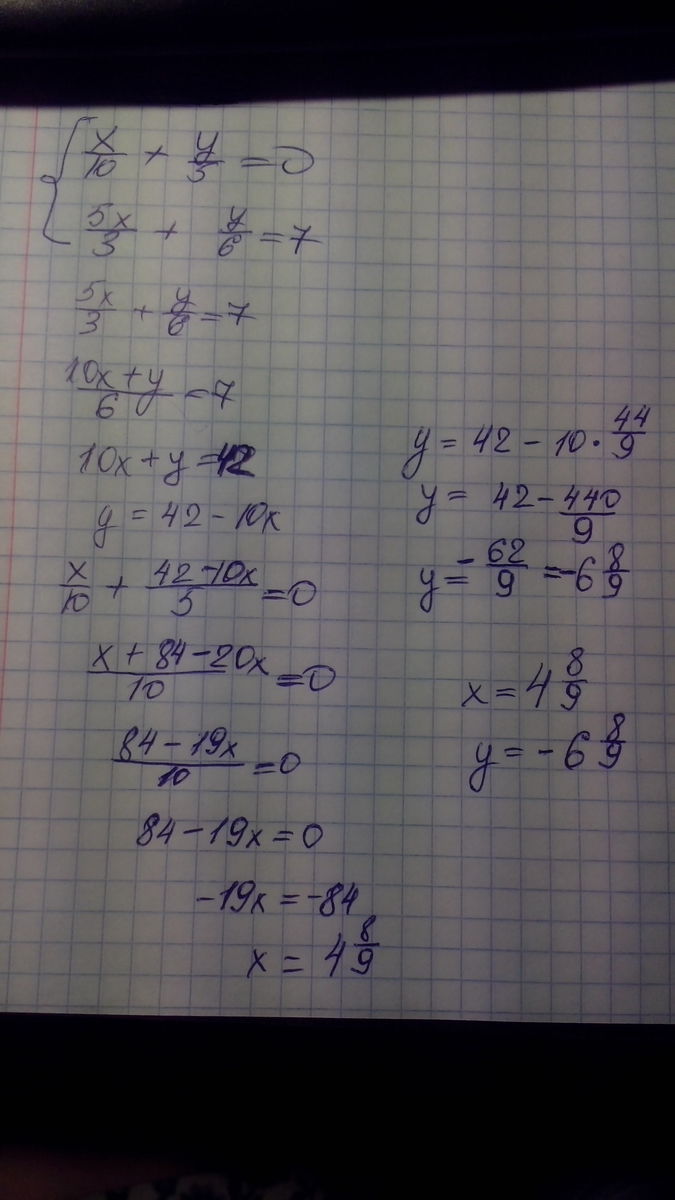 { x/10 + y/5 = 0
5x/3 + y/6 = 7
5x/3 + y/6 = 7
(10x + y)/6 = 7
10x + y = 42
y = 42 - 10x
x/10 + (42 - 10x)/5 = 0
(x + 84 - 20x)/10 = 0
(84 - 19x)/10 = 0
84 - 19x = 0
-19x = -84
x = 4 8/9
y = 42 - 10 · 44/9
y = 42 - 440/9
y = -62/9 = -6 8/9
x = 4 8/9
y = -6 8/9